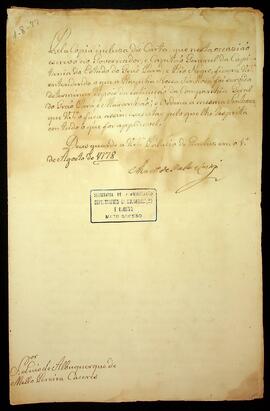 Pela Copia incluza da Carta que nesta occaziaõ
escrevo ao Governador, e Capitaõ General da Capi
tania do Estado do Graõ Pará, e Rio Negro, ficará V. S.ª
entendendo o que a Rainha Nossa Senhora foi servida
determinar depois da extinçaõ da Companhia Geral
do Graõ Pará e Maranhaõ; e Ordena a mesma Senhora
que V. S.ª faça assim executar pelo que lhe respeita
em tudo o que for applicavel.
Deos guarde a V. S.ª Palacio de Queluz em o 1.º
de Agosto de 1778
Mart.º de Mello e Castro
MATO GROSSO
S.ºʳ Luiz de Albuquerque de
Mello Pereira Caceres